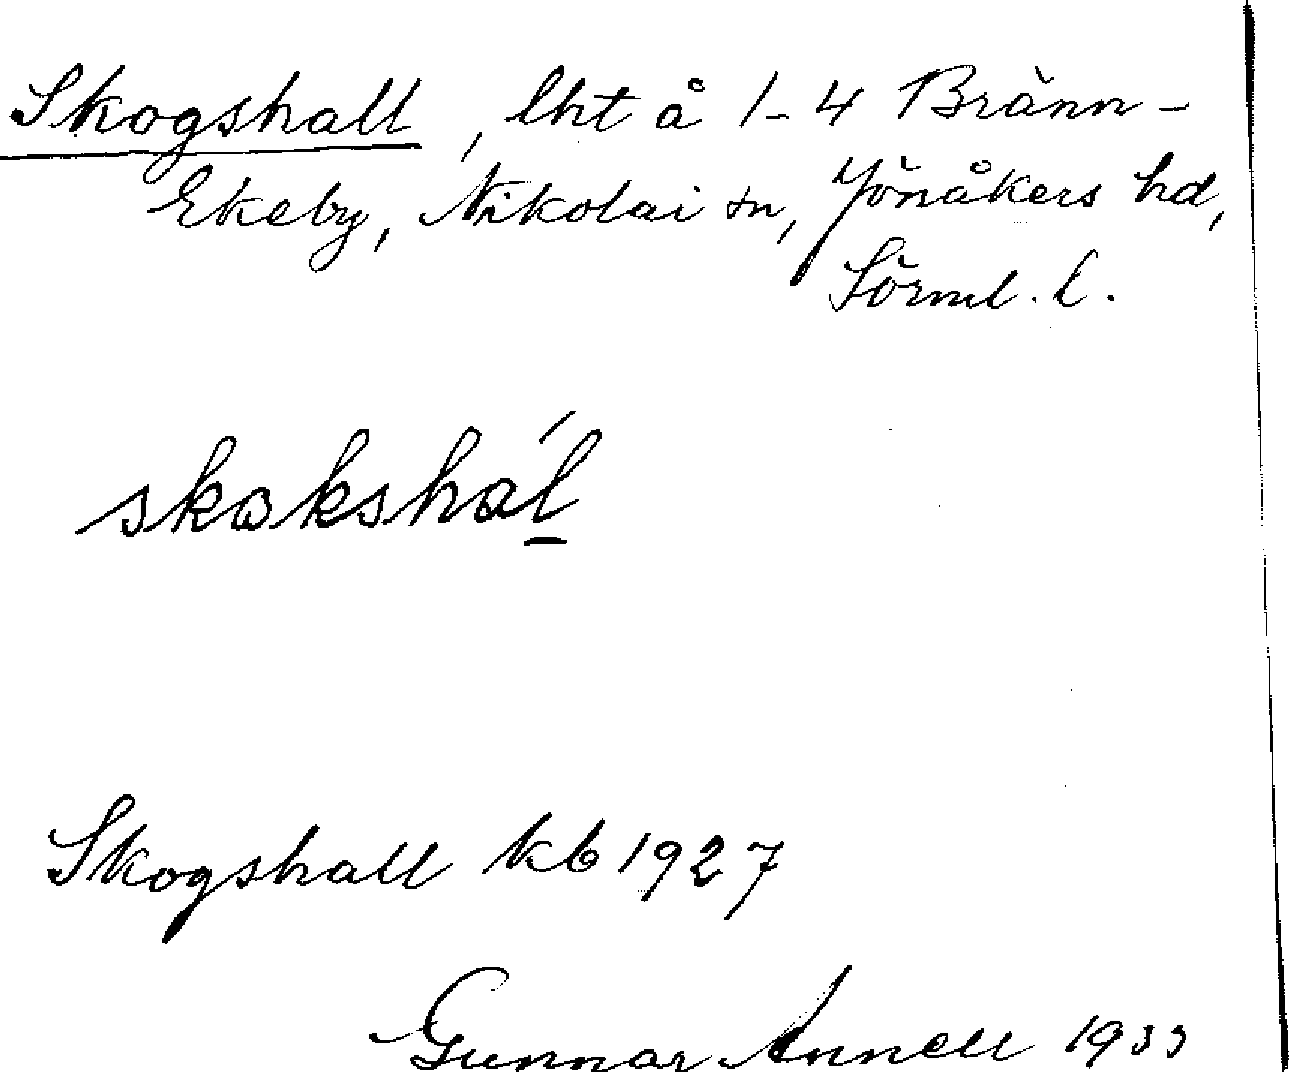 Skogshall, lht å 1-4 Bränn-
Ekeby, Nikolai sn, Jönåkers hd,
Sörml. l.
skɷkshál̲
Skogshall kb 1927
Gunnar Annell 1933